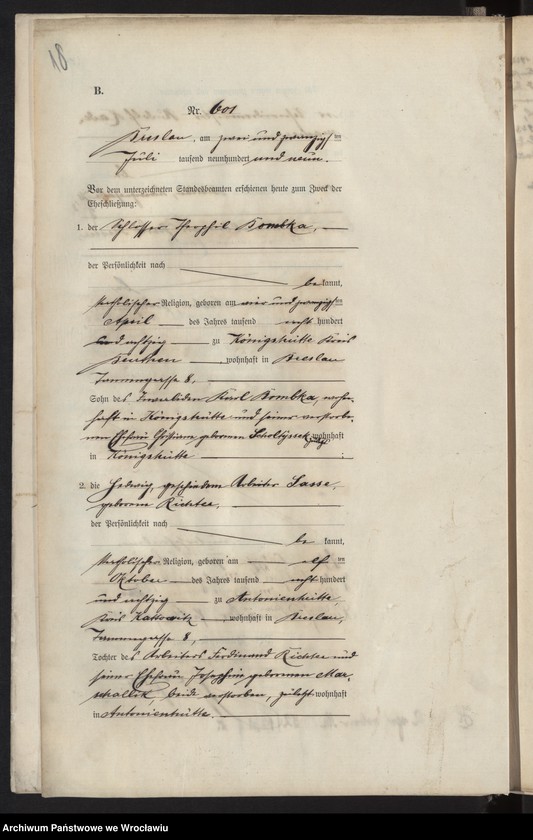 81
B.
Nr. 601
Breslau, am zwei und zwanzigsten
Juli tausend neunhundert und neun.
Vor dem unterzeichneten Standesbeamten erschienen heute zum Zweck der
Eheschließung:
1. der Schlosser Theophil Bombka,
der Persönlichkeit nach
bekannt,
katholischer Religion, geboren am vier und zwanzigsten
April des Jahres tausend acht hundert
und achtzig zu Königshütte Kreis
Beuthen, wohnhaft in Breslau
8,
Sohn des Invaliden Karl Bombka, wohn-
haft in Königshütte und seiner verstorbe-
nen Ehefrau Christiane geborenen Scholtyssek, zuletzt wohnhaft
in Königshütte.
2. die Hedwig, geschiedene Arbeiter Sasse,
geborene Richter.
der Persönlichkeit nach
be kannt,
katholischer Religion, geboren am elften
Oktober des Jahres tausend acht hundert
und achtzig zu Antonienhütte,
Kreis Kattowitz, wohnhaft in Breslau,
8,
Tochter des Arbeiters Ferdinand Richter und
seiner Ehefrau Josephine geborenen Mar-
schollek, beide verstorben, zuletzt wohnhaft
in Antonienhütte.
Archiwum Państwowe we Wrocławiu